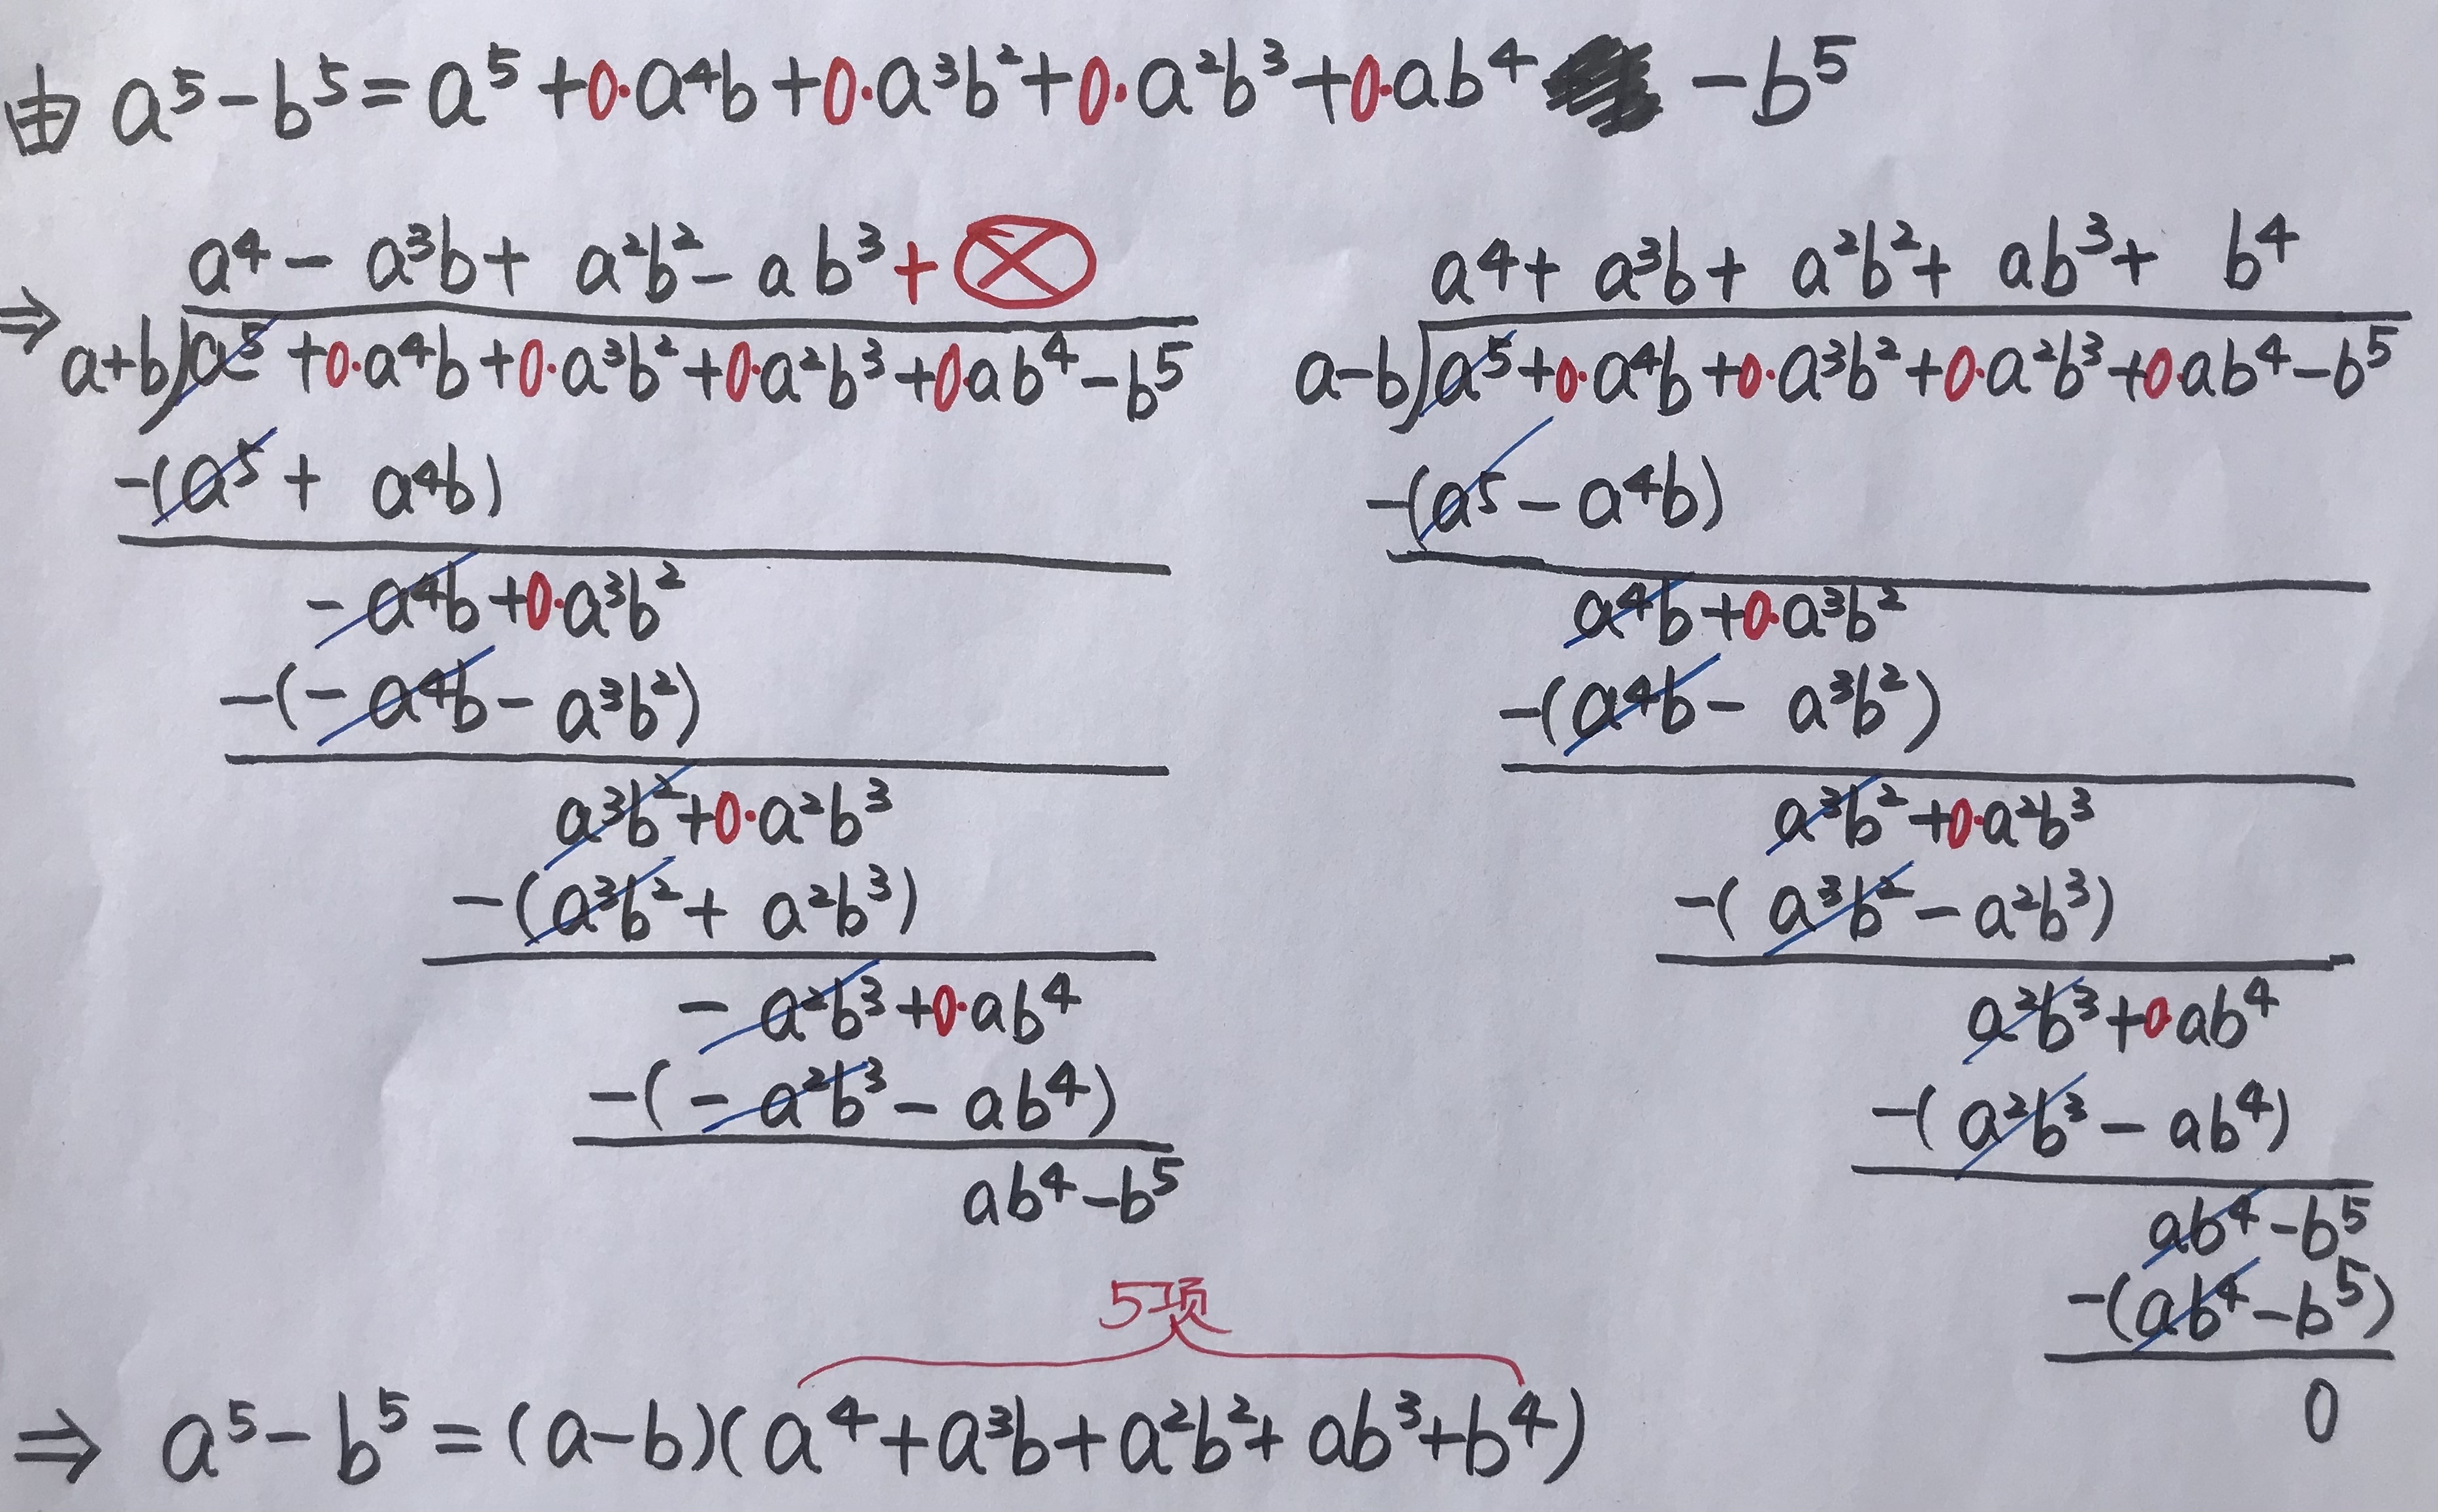 由 a⁵-b⁵=a⁵+0·a⁴b+0·a³b²+0·a²b³+0·ab⁴ -b⁵
a⁴- a³b+ a²b²- ab³+ⓧ
⇒ a+b)a⁵+0·a⁴b+0·a³b²+0·a²b³+0·ab⁴-b⁵
-(a⁵+ a⁴b)
-a⁴b+0·a³b²
-(-a⁴b- a³b²)
a³b²+0·a²b³
-(a³b²+ a²b³)
-a²b³+0·ab⁴
-(-a²b³- ab⁴)
ab⁴-b⁵
a⁴+ a³b+ a²b²+ ab³+ b⁴
a-b)a⁵+0·a⁴b+0·a³b²+0·a²b³+0·ab⁴-b⁵
-(a⁵-a⁴b)
a⁴b+0·a³b²
-(a⁴b- a³b²)
a³b²+0·a²b³
-(a³b²-a²b³)
a²b³+0·ab⁴
-(a²b³- ab⁴)
ab⁴-b⁵
-(ab⁴-b⁵)
0
5项
⇒ a⁵-b⁵=(a-b)(a⁴+a³b+a²b²+ab³+b⁴)